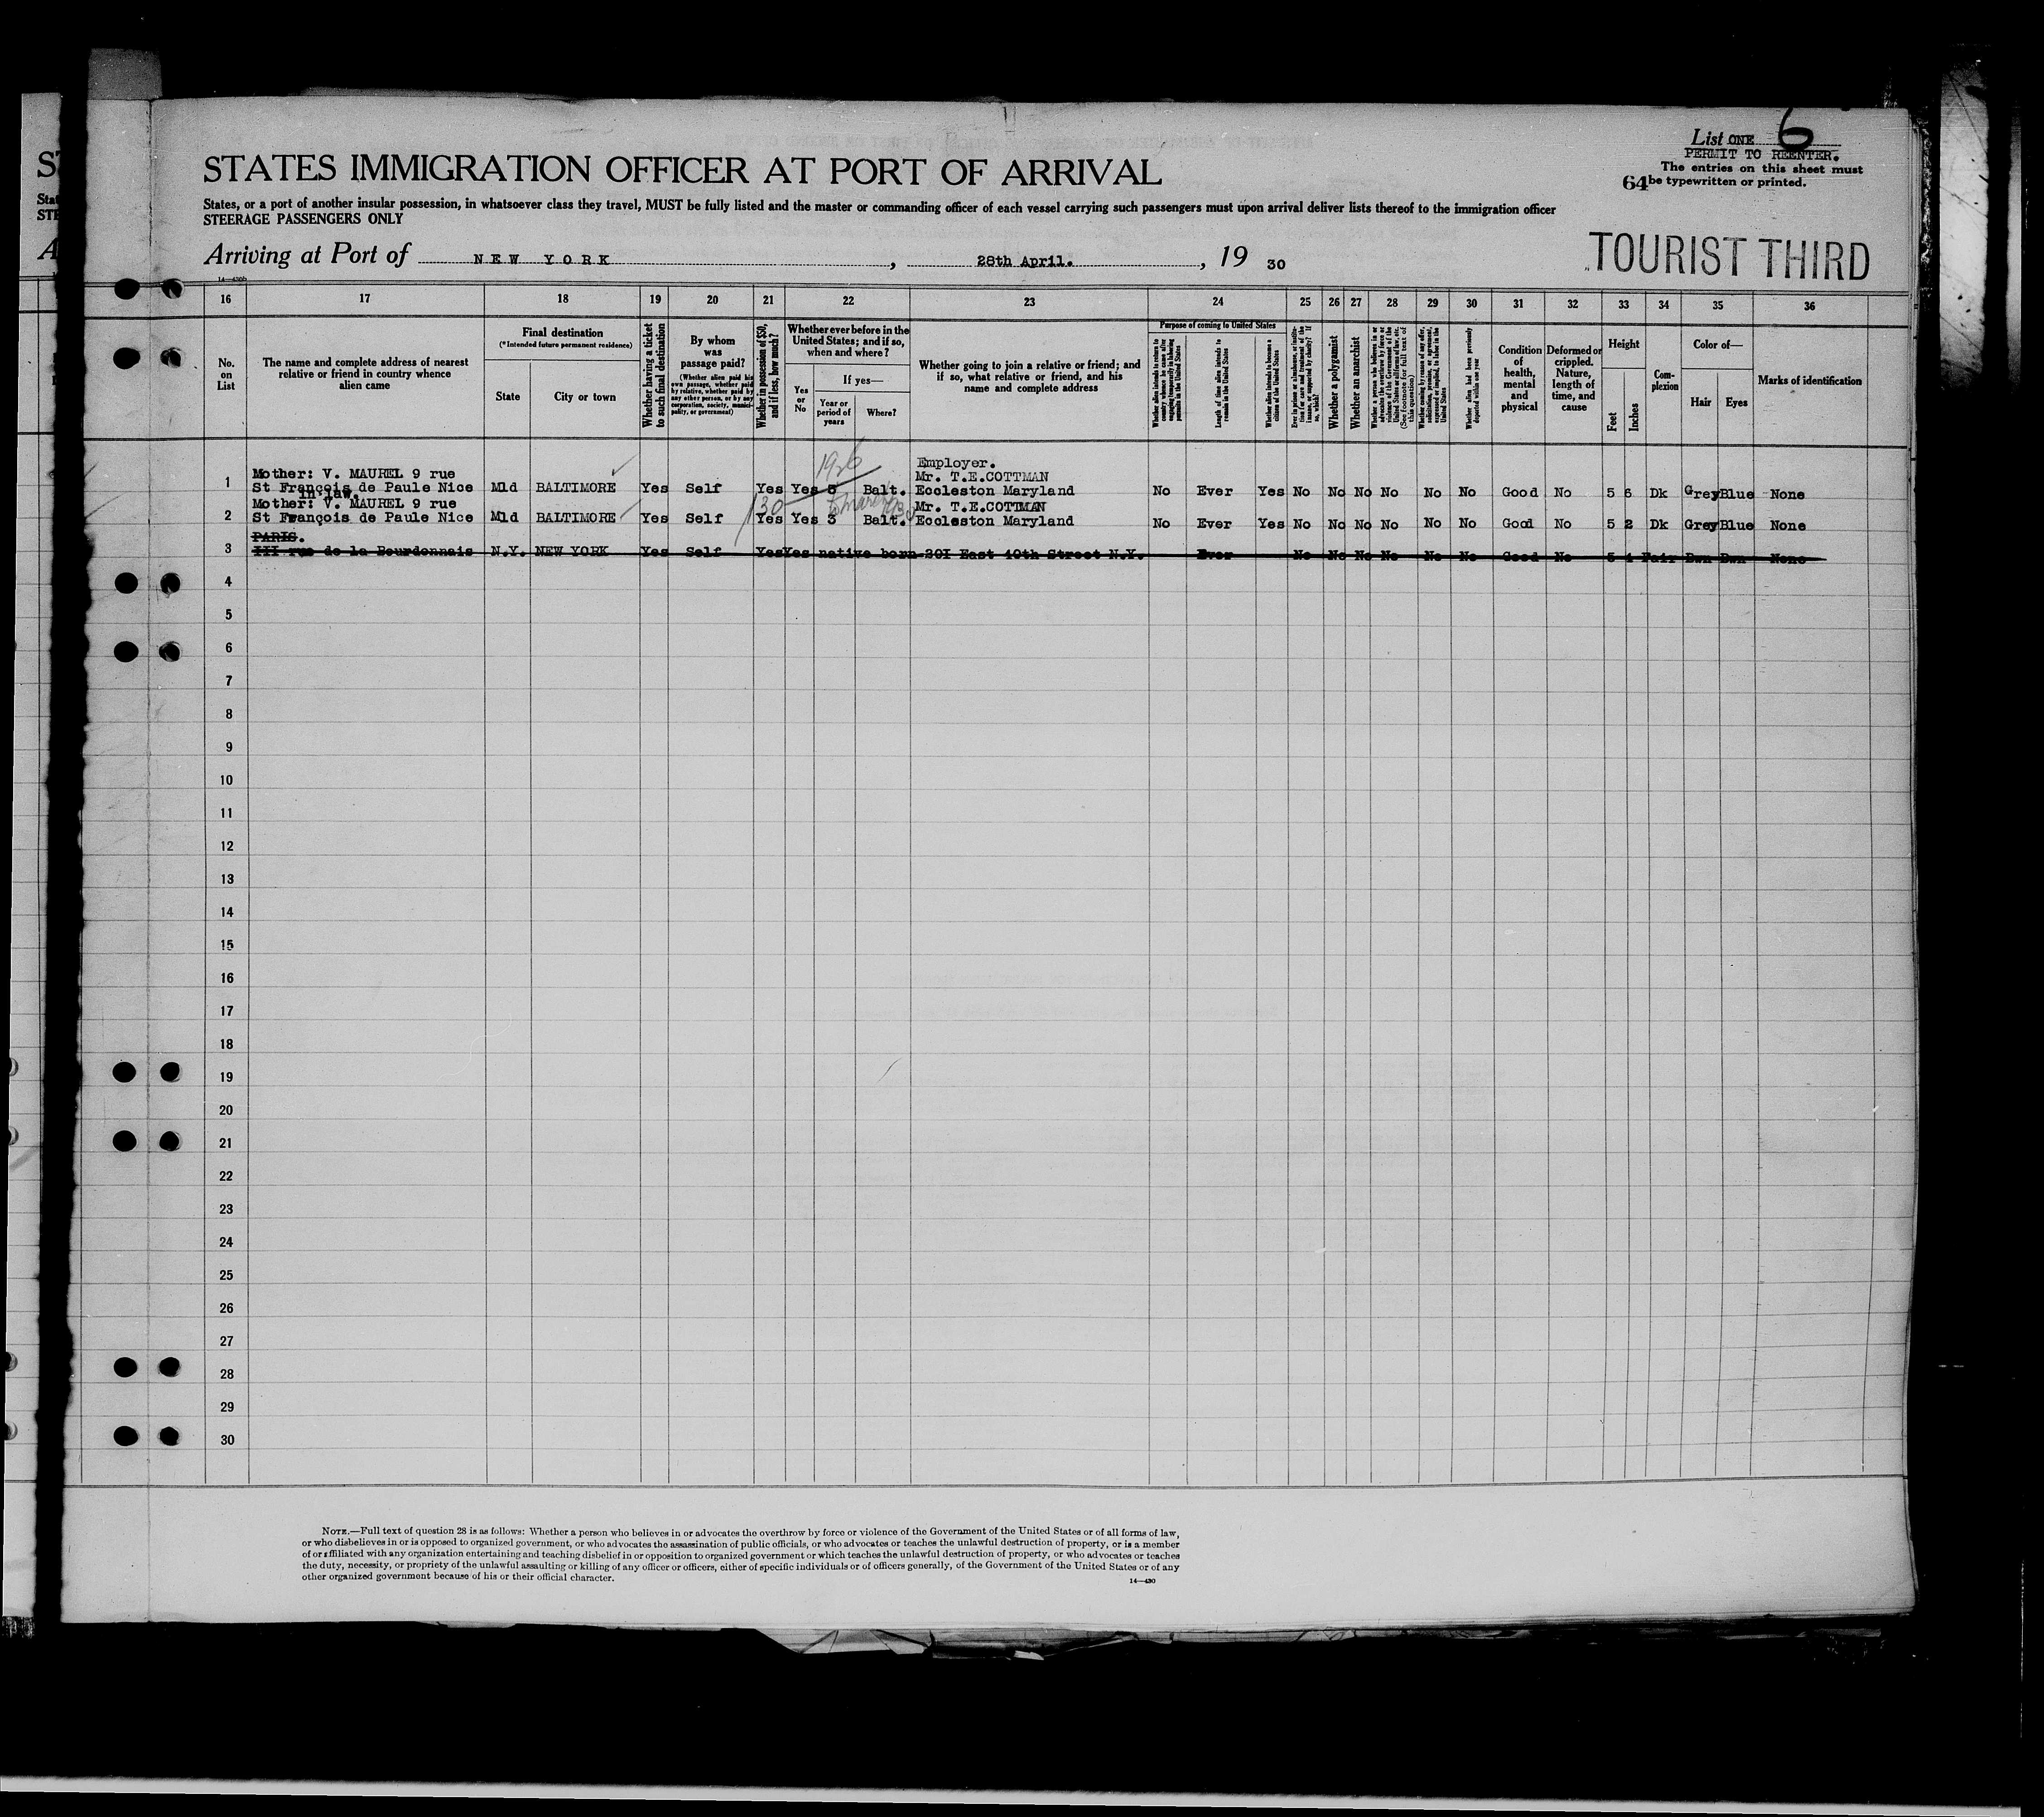 List ONE 6
PERMIT TO REENTER.
The entries on this sheet must
64 be typewritten or printed.
STATES IMMIGRATION OFFICER AT PORT OF ARRIVAL
States, or a port of another insular possession, in whatsoever class they travel, MUST be fully listed and the master or commanding officer of each vessel carrying such passengers must upon arrival deliver lists thereof to the immigration officer
STEERAGE PASSENGERS ONLY
Arriving at Port of NEW YORK, 28th April., 19 30
TOURIST THIRD
16 17 18 19 20 21 22 23 24 25 26 27 28 29 30 31 32 33 34 35 36
No. on List
The name and complete address of nearest
relative or friend in country whence
alien came
Final destination
(*Intended future permanent residence)
State
City or town
Whether having a ticket
to such final destination
By whom
was
passage paid?
(Whether alien paid his
own passage, whether paid
by relative, whether paid by
any other person, or by any
corporation, society, munici-
pality, or government)
Whether in possession of $50,
and if less, how much?
Whether ever before in the
United States; and if so,
when and where?
Yes
or
No
If yes—
Year or
period of
years
Where?
Whether going to join a relative or friend; and
if so, what relative or friend, and his
name and complete address
Purpose of coming to United States
Length of time alien intends to
remain in the United States
Whether alien intends to become a
citizen of the United States
Whether a polygamist
Whether an anarchist
Whether alien had been previously
deported within one year
Condition
of
health,
mental
and
physical
Deformed or
crippled.
Nature,
length of
time, and
cause
Height
Feet
Inches
Com-
plexion
Color of—
Hair
Eyes
Marks of identification
1926
Employer.
Mother: V. MAUREL 9 rue Mr. T.E.COTTMAN
1 St François de Paule Nice Mld BALTIMORE Yes Self Yes Yes 5 Balt. Eccleston Maryland No Ever Yes No No No No No No Good No 5 6 Dk Grey Blue None
in law.
130
Mother: V. MAUREL 9 rue Mr. T.E.COTTMAN
2 St François de Paule Nice Mld BALTIMORE Yes Self Yes Yes 3 Balt. Eccleston Maryland No Ever Yes No No No No No No Good No 5 2 Dk Grey Blue None
PARIS.
3 III rue de la Bourdonnais N.Y. NEW YORK Yes Self Yes Yes native born 201 East 40th Street N.Y. Ever No No No No No No Good No 5 4 Fair Bwn Bwn None
4
5
6
7
8
9
10
11
12
13
14
15
16
17
18
19
20
21
22
23
24
25
26
27
28
29
30
NOTE.—Full text of question 28 is as follows: Whether a person who believes in or advocates the overthrow by force or violence of the Government of the United States or of all forms of law,
or who disbelieves in or is opposed to organized government, or who advocates the assassination of public officials, or who advocates or teaches the unlawful destruction of property, or is a member
of or affiliated with any organization entertaining and teaching disbelief in or opposition to organized government or which teaches the unlawful destruction of property, or who advocates or teaches
the duty, necessity, or propriety of the unlawful assaulting or killing of any officer or officers, either of specific individuals or of officers generally, of the Government of the United States or of any
other organized government because of his or their official character.
14—430